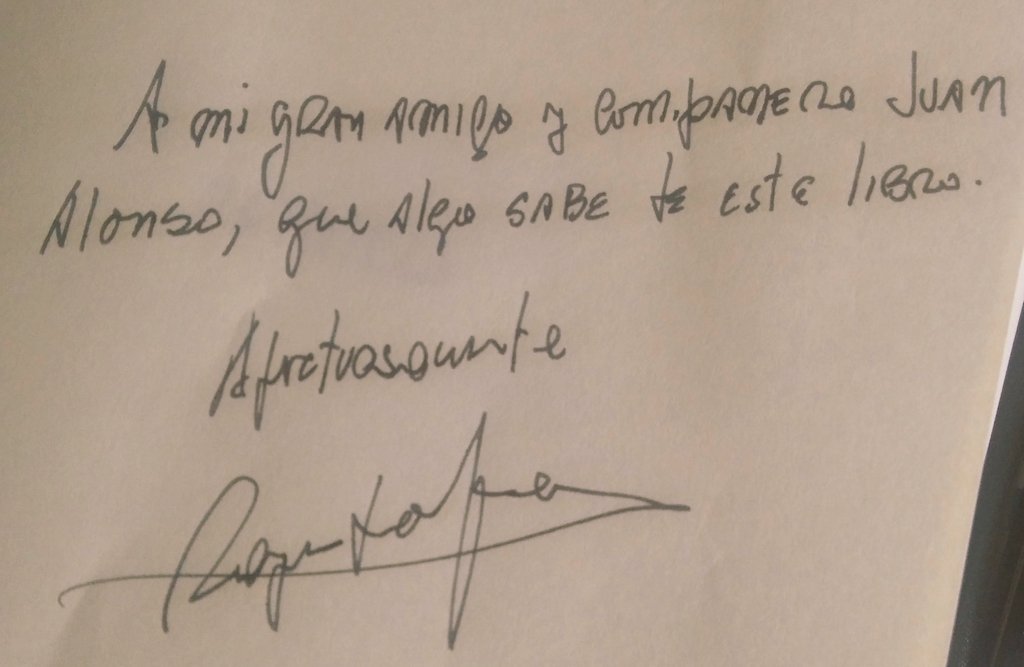 A mi gran amigo y compañero Juan
Alonso, que algo sabe de este libro.
Afectuosamente